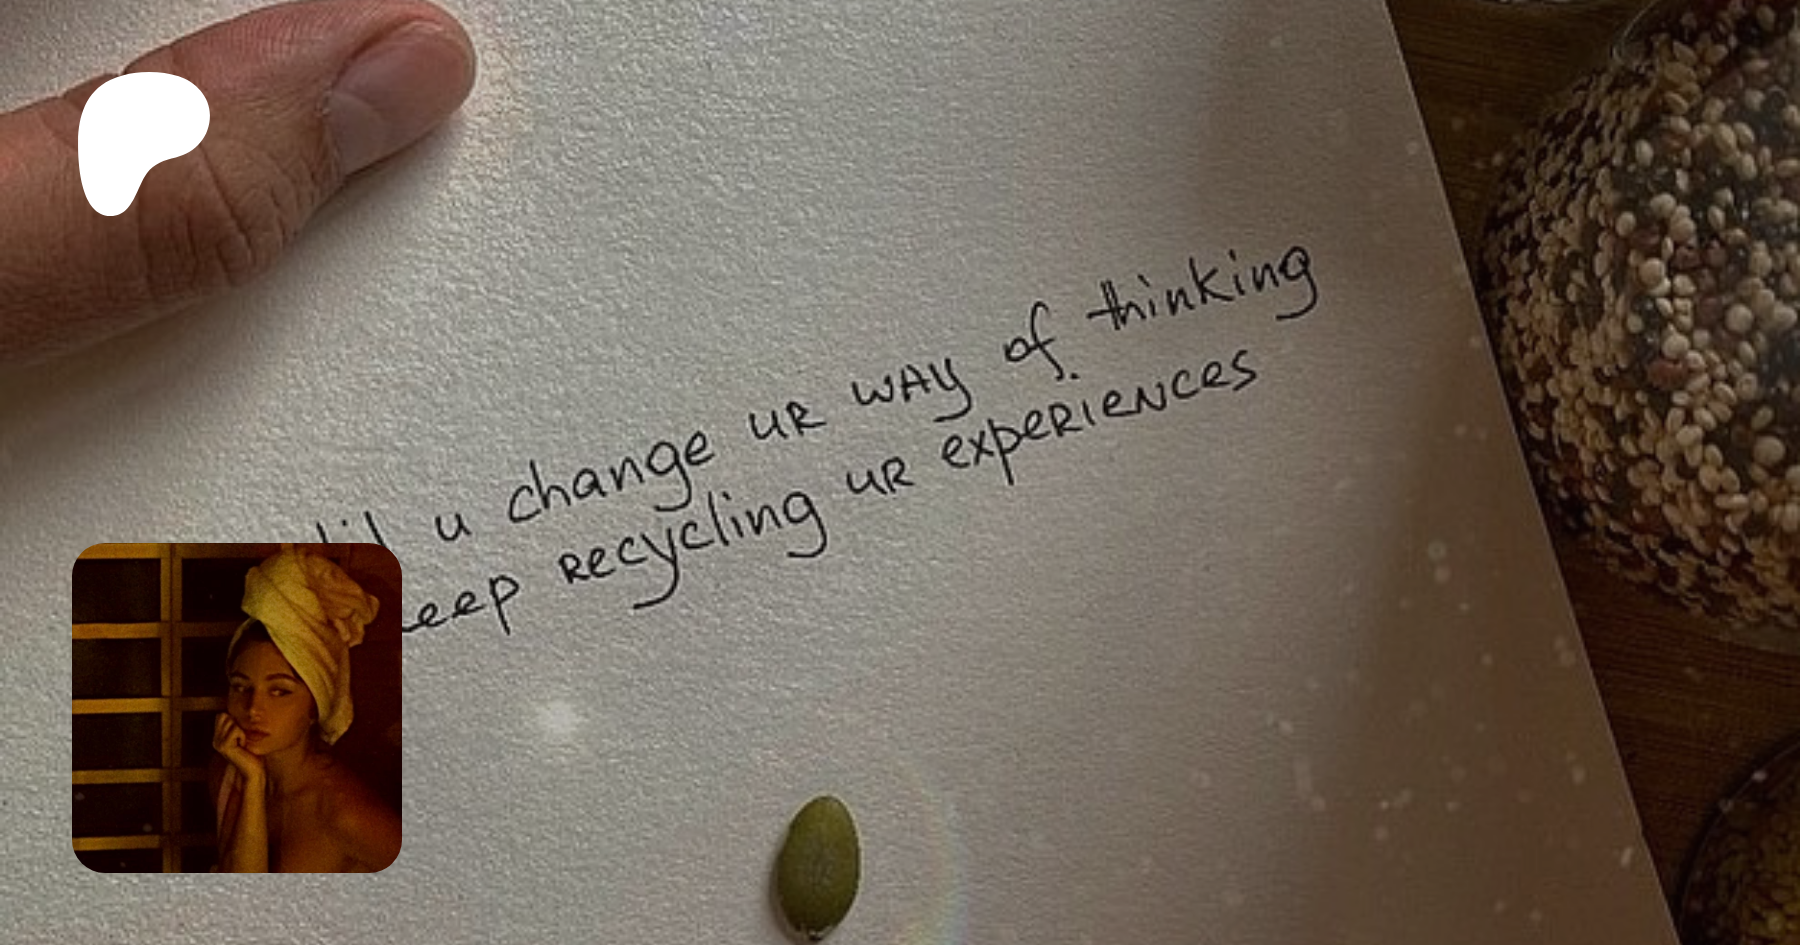 u change uR WAY of thinking
recycling uR experiences